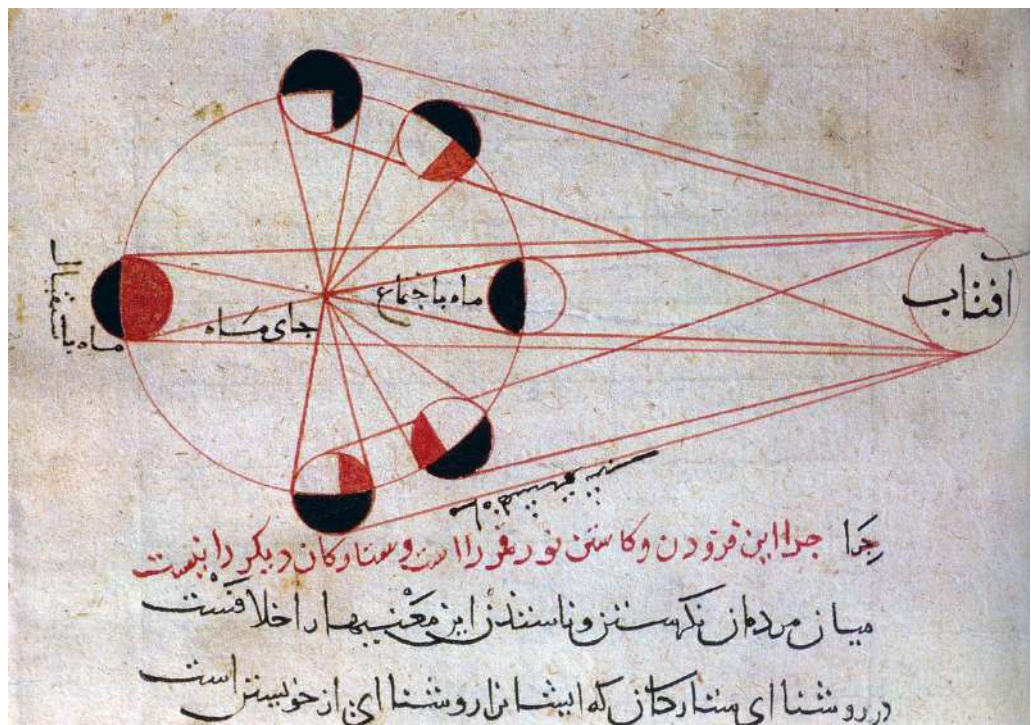 افتاب
ماه باجتماع
جای ماه
ماه باستقبال
ماه
جرا جرا این فزودن وکاستن نور قمر را است وستارکان دیکر را نیست
میان مردمان این معنیها را خلافست
در روشنای ستارکان که ایشانرا روشنای از خویشتن است